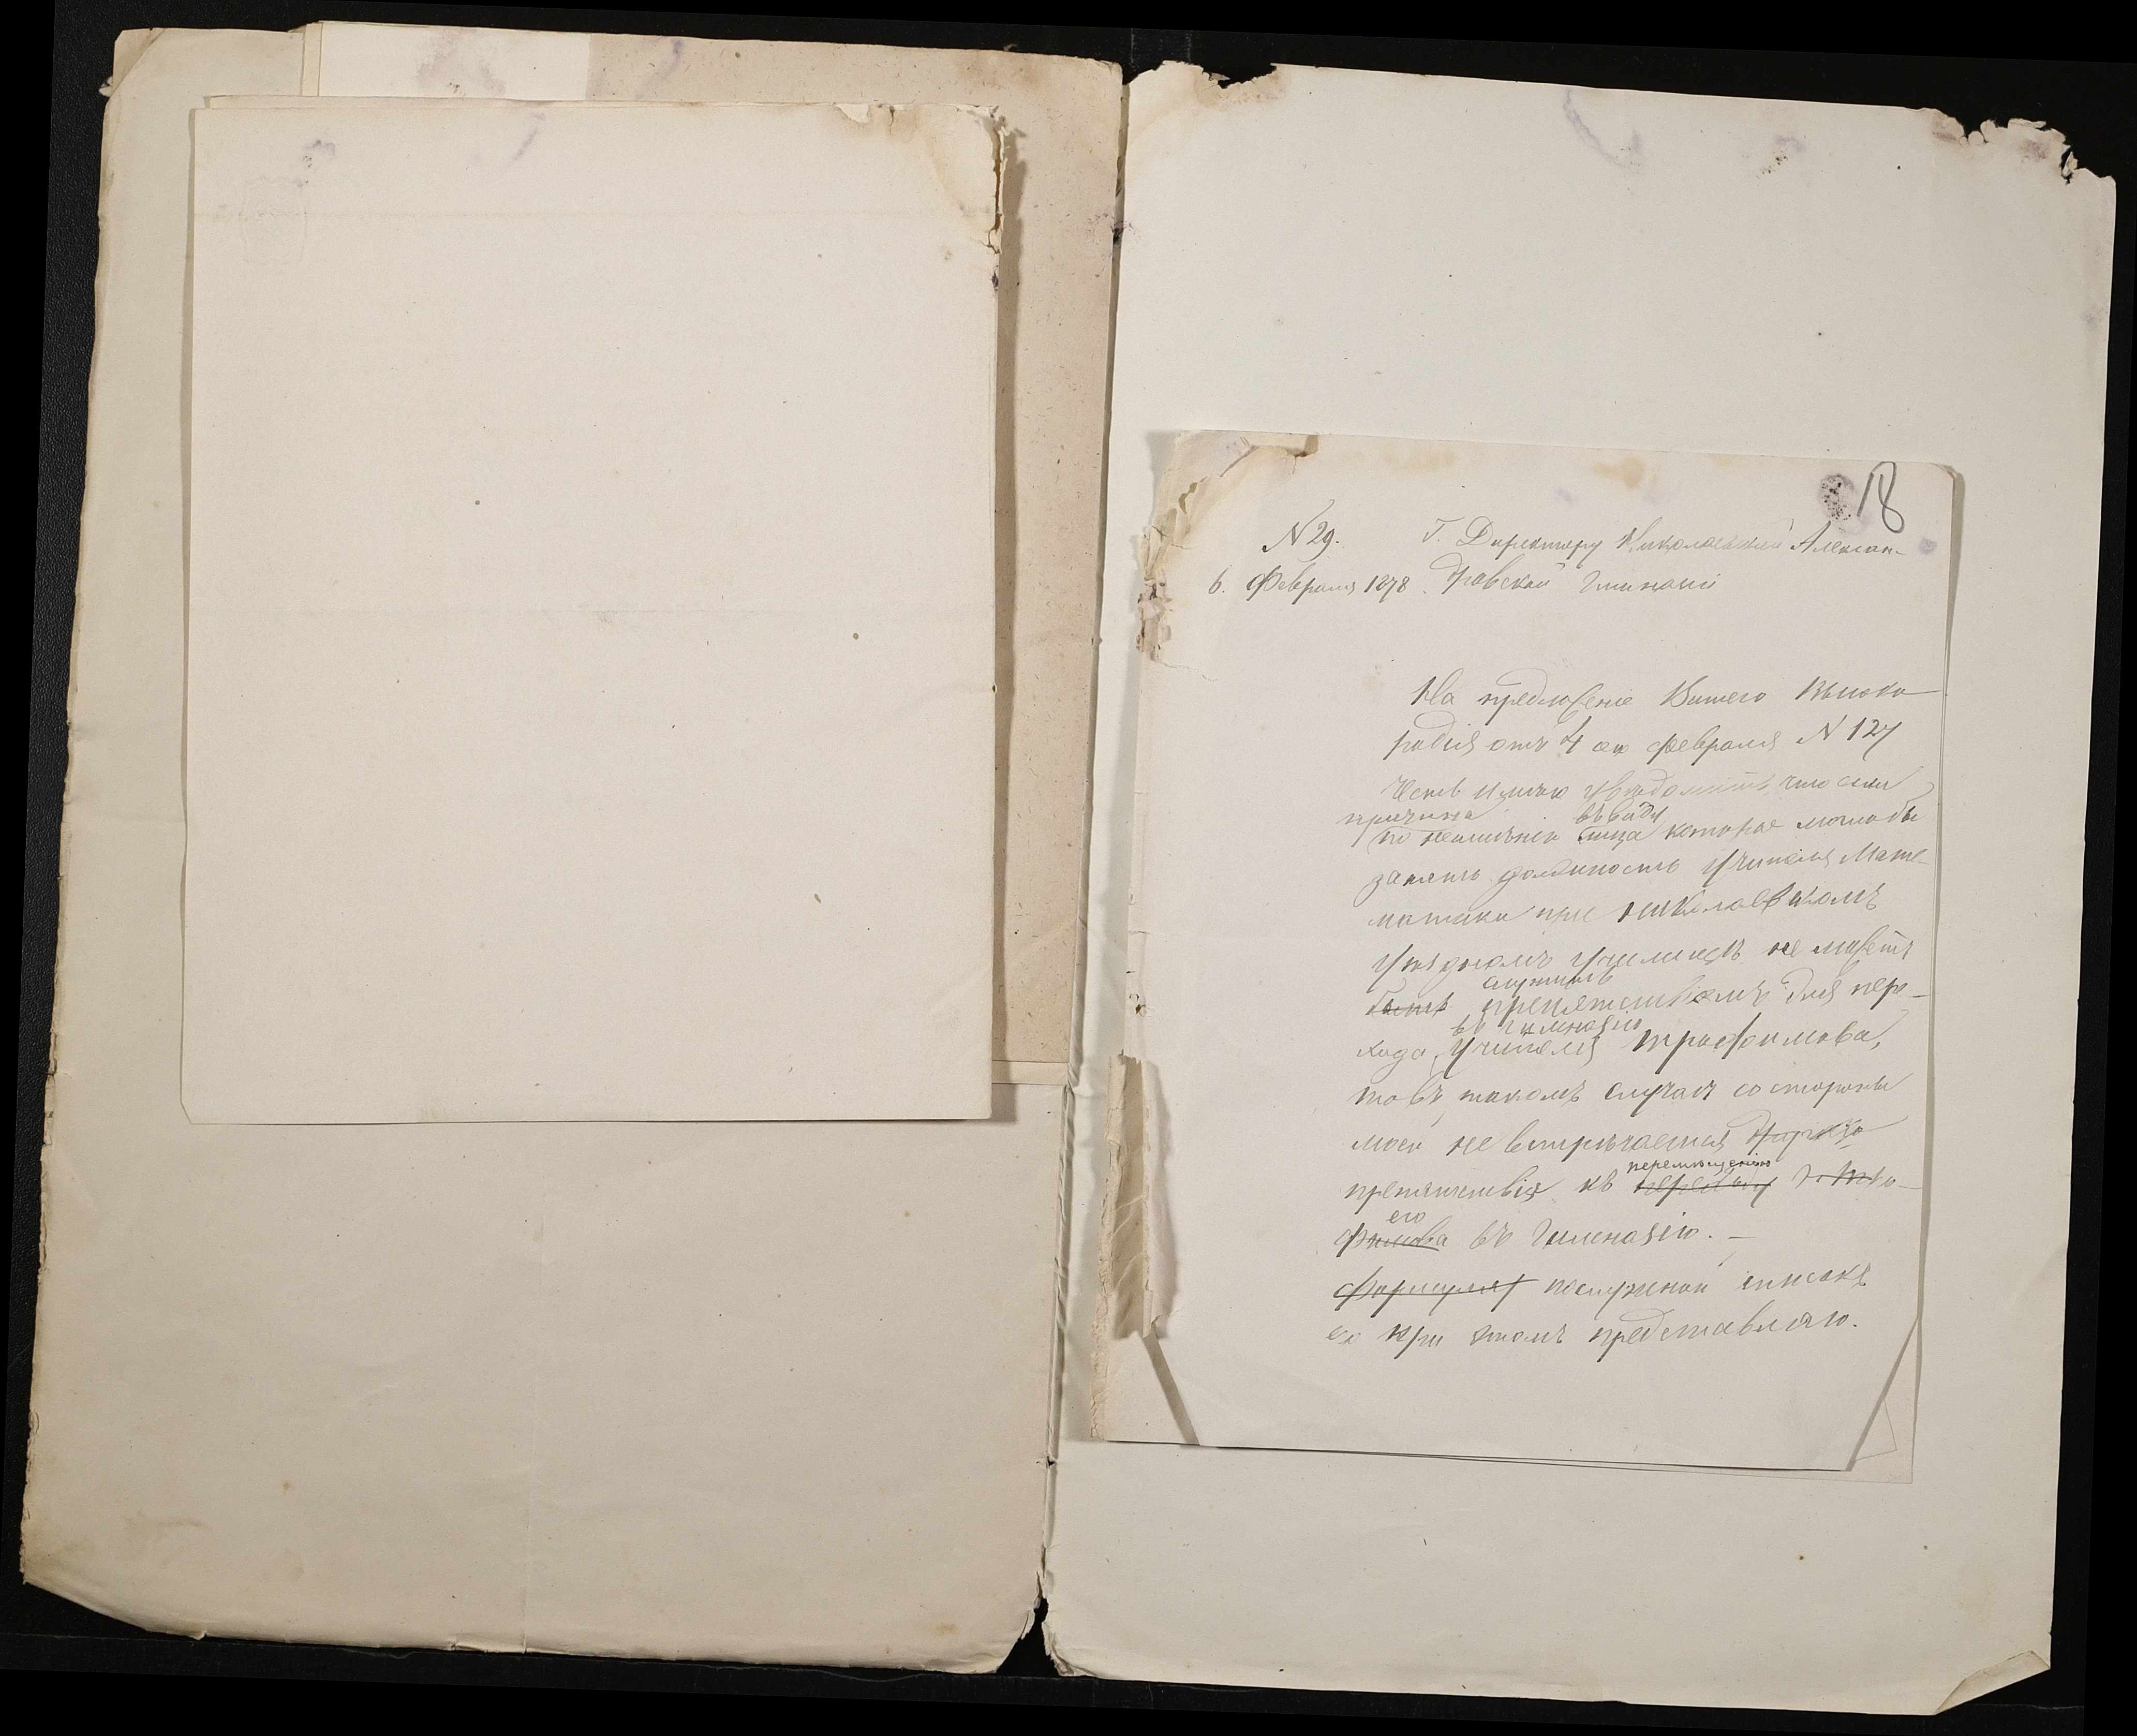 18
N 29. Г. Директору Николаевской Алексан-
6. Февраля 1878. дровской Гимназіи
На предложеніе Вашего Высоко-
родія отъ 4 Февраля N 127
Честь имѣю увѣдомить, что если
причина въ виду
по неимѣнію лица которое могло бы
занять должность Учителя Мате-
матики при Николаевскомъ
Уѣздномъ Училищѣ не можетъ
служить
быть препятствіемъ для пере-
въ гимназію
хода Учителя Трофимова,
то въ такомъ случаѣ со стороны
моей не встрѣчается
препятствія къ перемѣщенію
переходу г. Тро-
его
фимова въ Гимназію. —
Формуляр послужной списокъ
его при этомъ представляю.